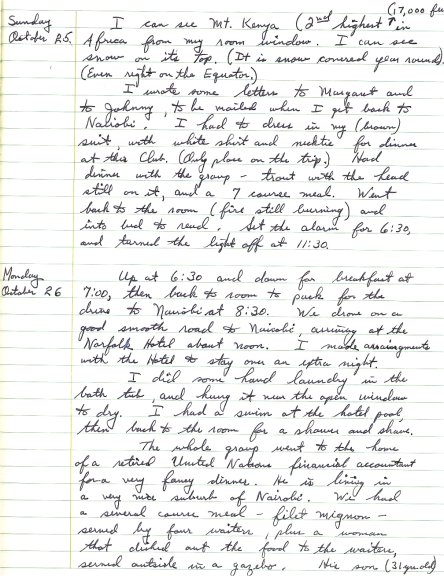 (17,000 fe
Sunday I can see Mt. Kenya (2nd highest ↑ in
October 25, Africa from my room window. I can see
snow on its top. (It is snow covered year round)
(Even right on the Equator.)
I wrote some letters to Margaret and
to Johnny, to be mailed when I get back to
Nairobi. I had to dress in my (brown)
suit, with white shirt and necktie for dinner
at this Club. (Only place on the trip.) Had
dinner with the group - trout with the head
still on it, and a 7 course meal. Went
back to the room (fire still burning) and
into bed to read. Set the alarm for 6:30,
and turned the light off at 11:30.
Monday Up at 6:30 and down for breakfast at
October 26 7:00, then back to room to pack for the
drive to Nairobi at 8:30. We drove on a
good smooth road to Nairobi, arriving at the
Norfolk Hotel about noon. I made arraingments
with the Hotel to stay over an extra night.
I did some hand laundry in the
bath tub, and hung it near the open window
to dry. I had a swim at the hotel pool,
then back to the room for a shower and shave.
The whole group went to the home
of a retired United Nations financial accountant
for a very fancy dinner. He is living in
a very nice suburb of Nairobi. We had
a several course meal - filet mignon -
served by four waiters, plus a woman
that dished out the food to the waiters,
served outside in a gazebo. His son (31 yrs old)